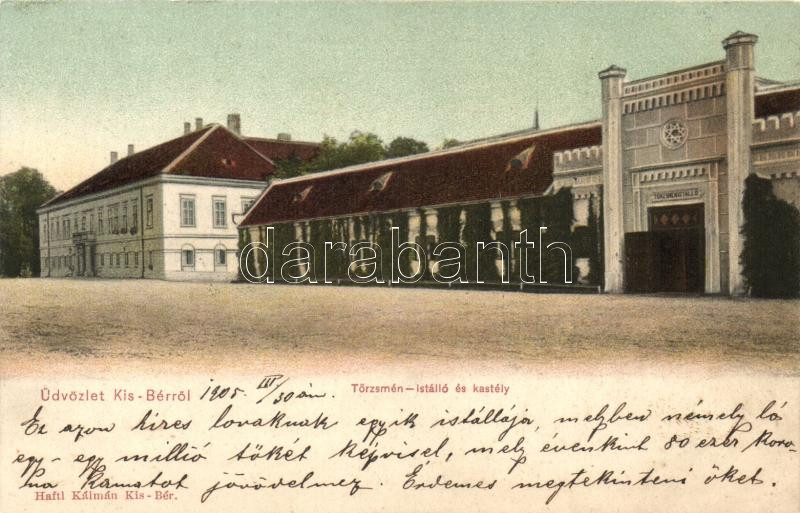 TÖRZSMÉNISTÁLLÓ
darabanth
Üdvözlet Kis-Bérről 1905 III/30án.
Törzsmén-istálló és kastély
Ez azon híres lovaknak egyik istállója, melyben némely ló
egy-egy millió tőkét képvisel, mely évenkint 80 ezer koro-
na kamatot jövödelmez. Érdemes megtekinteni őket.
Haftl Kálmán Kis-Bér.